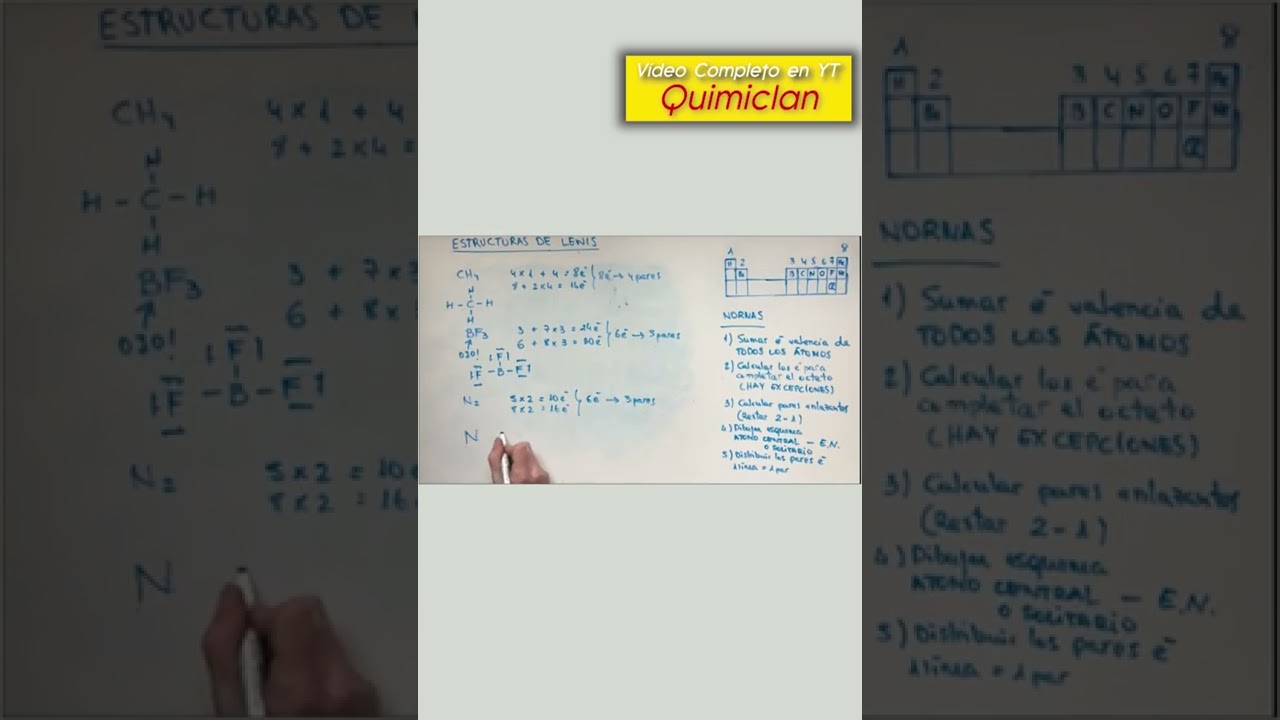 Vídeo Completo en YT
Quimiclan
ESTRUCTURAS DE LEWIS
CH4
4x1 + 4 = 8e-
8 + 2x4 = 16e-
8e- → 4 pares
H
H - C - H
H
BF3
3 + 7x3 = 24e-
6 + 8x3 = 30e-
6e- → 3 pares
OJO!
F
F - B - F
N2
5x2 = 10e-
8x2 = 16e-
6e- → 3 pares
N
1 8
H 2 3 4 5 6 7 He
Be B C N O F Ne
Cl
NORMAS
1) Sumar e- valencia de
TODOS LOS ÁTOMOS
2) Calcular los e- para
completar el octeto
(HAY EXCEPCIONES)
3) Calcular pares enlazantes
(Restar 2-1)
4) Dibujar esquema
ATOMO CENTRAL - E.N.
O SOLITARIO
5) Distribuir los pares e-
1 línea = 1 par